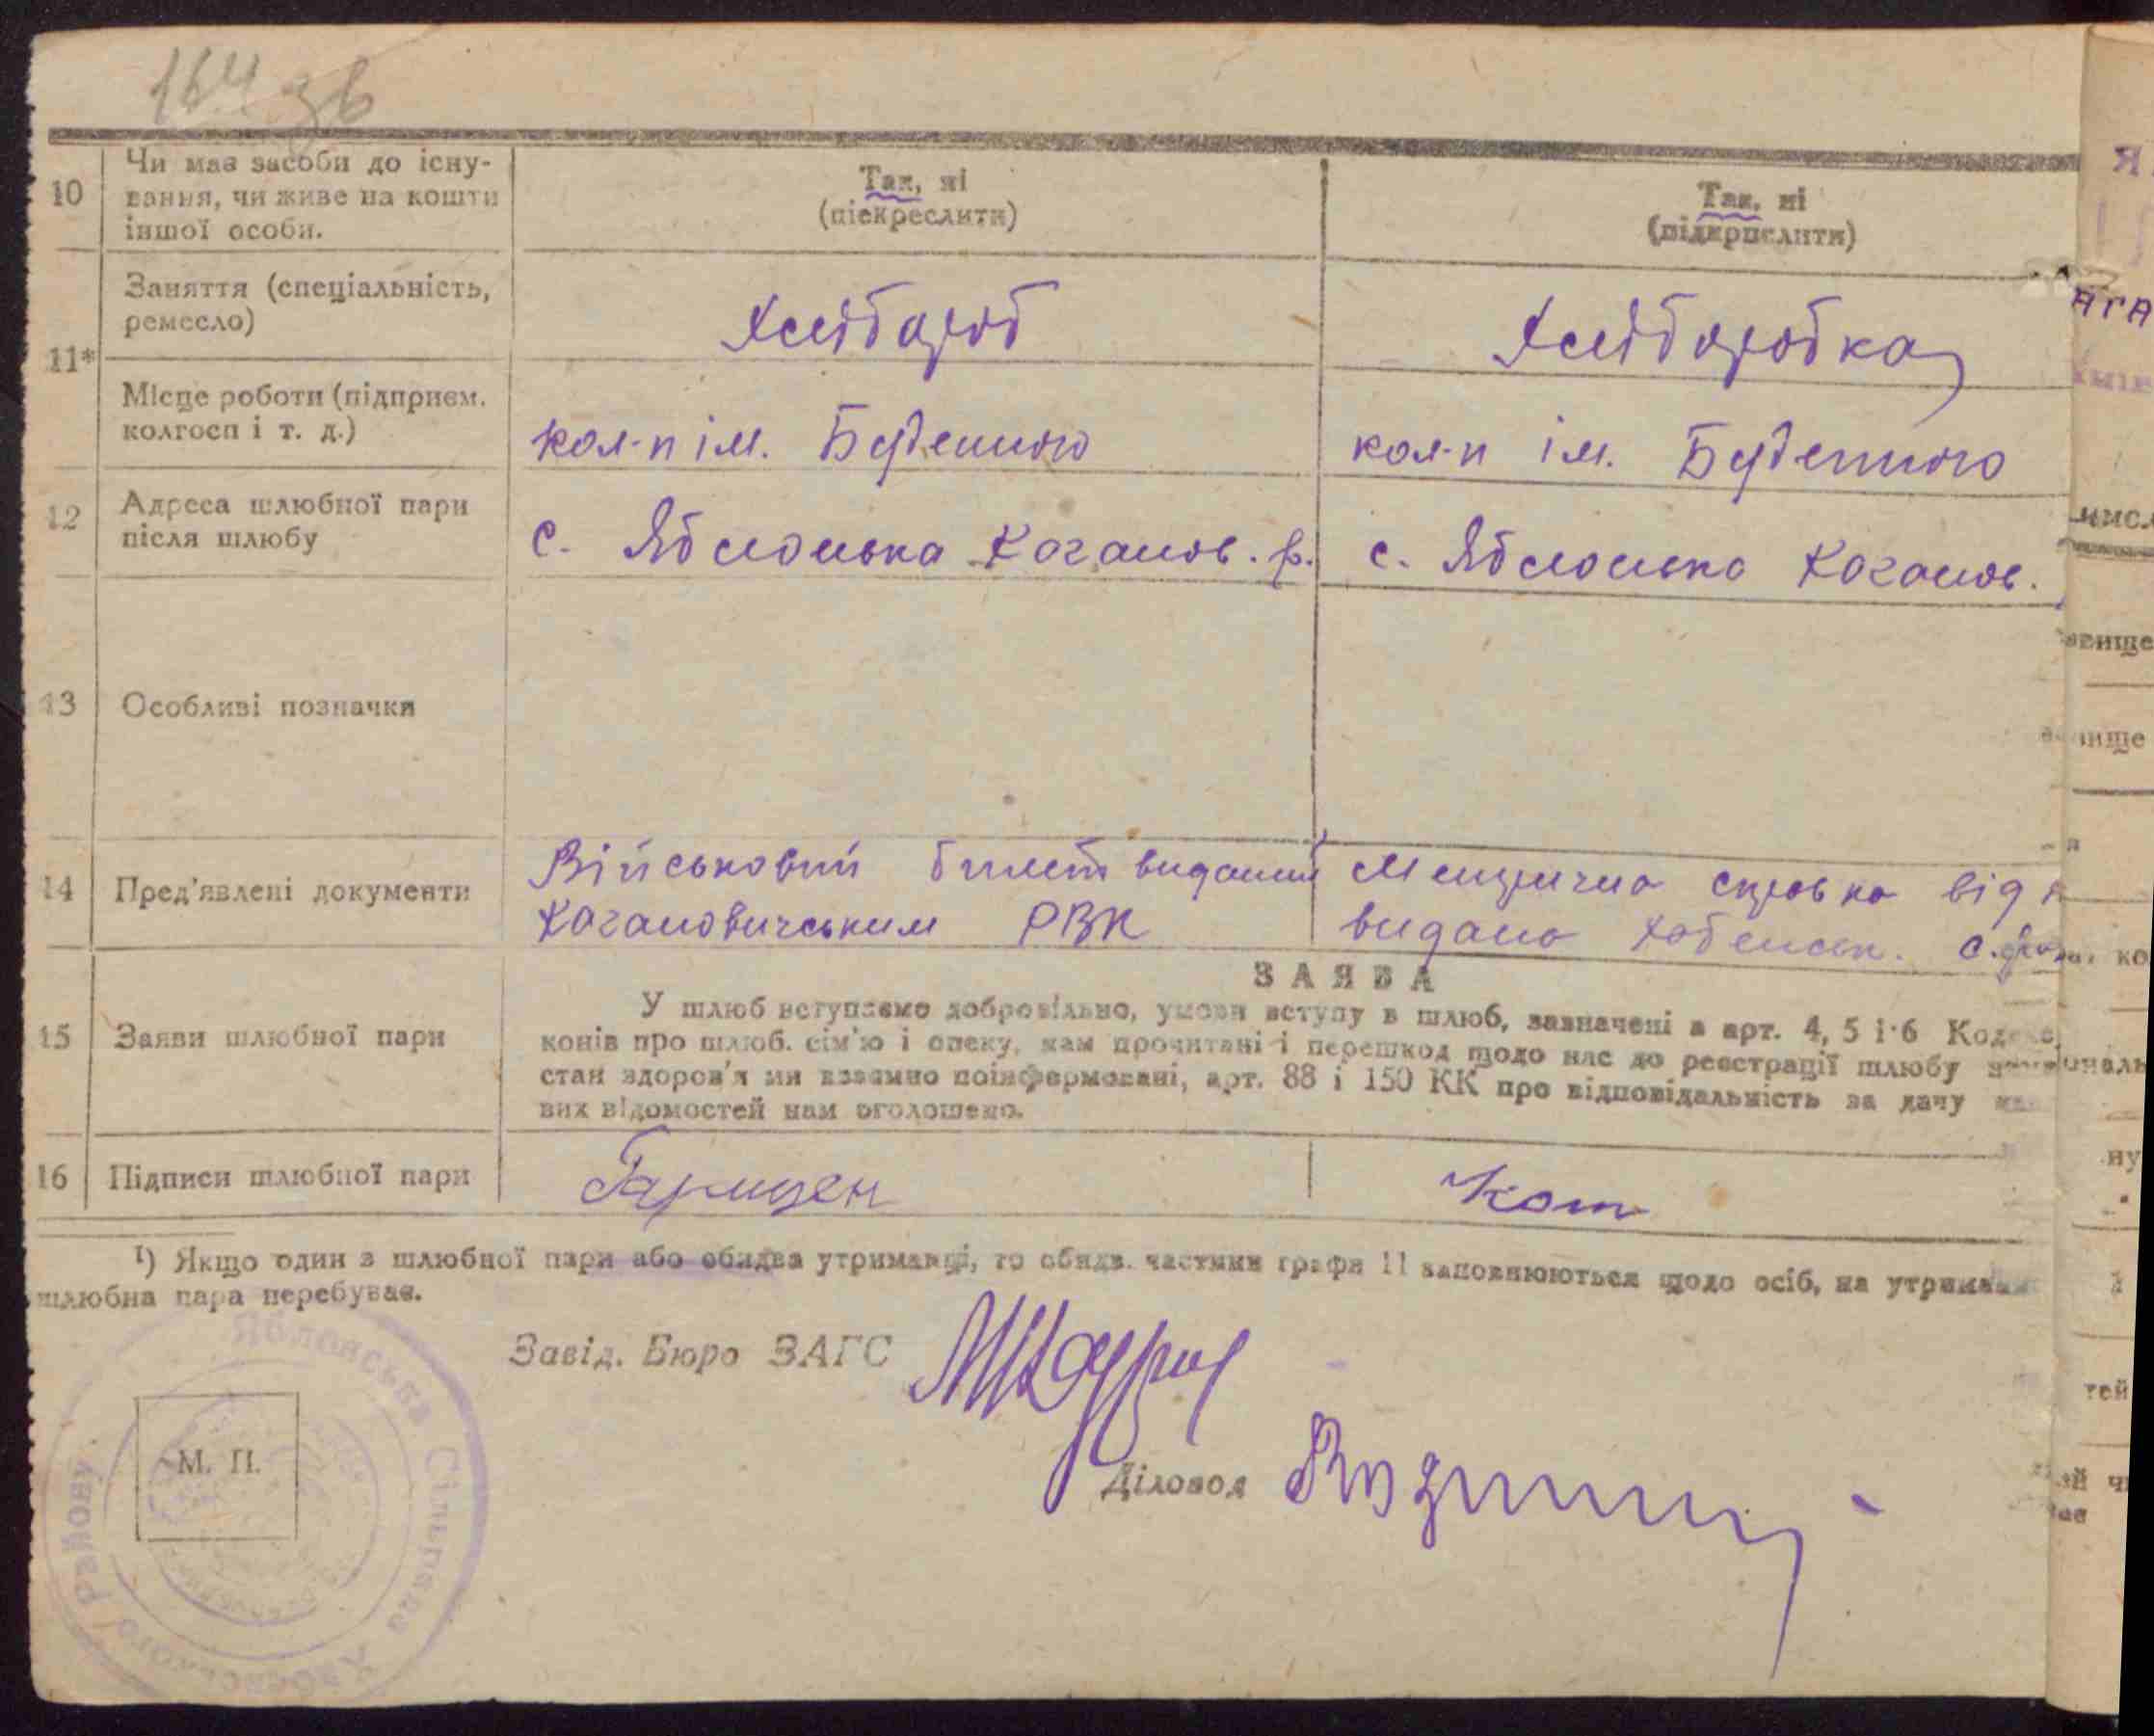 164 зв
10 Чи має засоби до існу-
вання, чи живе на кошти
іншої особи.
Так, ні
(піекреслити)
Так, ні
(підкрпслити)
11*
Заняття (спеціальність,
ремесло)
Хлібороб
Хліборобка
Місце роботи (підприєм.
колгосп і т. д.)
кол-п ім. Буденного
кол-п ім. Буденного
12 Адреса шлюбної пари
після шлюбу
с. Яблонька Коганов. р.
с. Яблонька Коганов.
13 Особливі позначки
14 Пред'явлені документи
Військовий билет виданий
Когановичським РВК
Метрична справка від
видано Хабенськ.
ЗАЯВА
15 Заяви шлюбної пари
У шлюб вступаємо добровільно, умови вступу в шлюб, зазначені в арт. 4, 5 і 6 Кодекс
конів про шлюб. сім'ю і опеку, нам прочитані і перешкод щодо нас до реєстрації шлюбу
стан здоров'я ми взаємно поінформовані, арт. 88 і 150 КК про відповідальність за дачу
вих відомостей нам оголошено.
16 Підписи шлюбної пари
Кот
1) Якщо один з шлюбної пари або обидва утриманці, то обидв. частини графи 11 заповнюються щодо осіб, на утриман
шлюбна пара перебуває.
Завід. Бюро ЗАГС
Діловод
М. П.
Яблонська Сільрада Хабенського Району